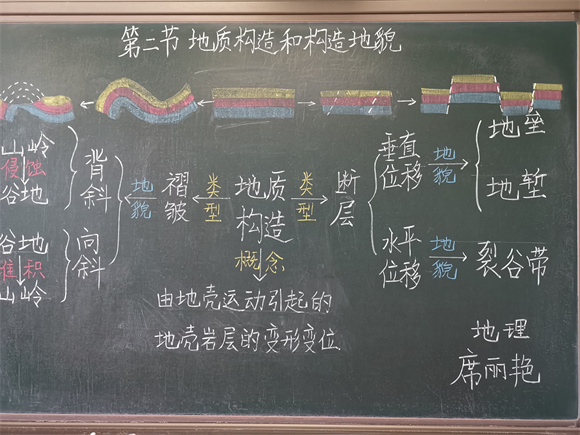 第二节 地质构造和构造地貌
山岭
侵蚀
谷地
背斜
谷地
堆积
山岭
向斜
地貌
褶皱
类型
地质构造
类型
断层
概念
由地壳运动引起的
地壳岩层的变形变位
垂直位移
地貌
地垒
地堑
水平位移
地貌
裂谷带
地理
席丽艳